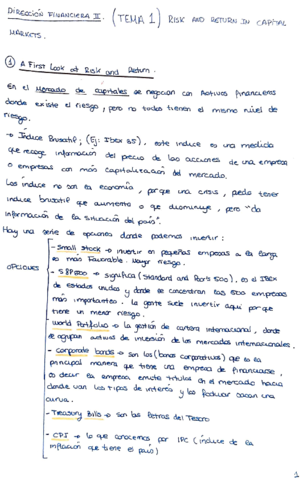 DIRECCIÓN FINANCIERA II. (TEMA 1) RISK AND RETURN IN CAPITAL
MARKETS.
① A First Look at Risk and Return.
En el Mercado de capitales se negocian con Activos financieros
donde existe el riesgo, pero no todos tienen el mismo nivel de
riesgo.
→ Índice Bursátil; (Ej: Ibex 35), este índice es una medida
que recoge información del precio de las acciones de una empresa
o empresas con más Capitalización del mercado.
Los índice no son la economía, porque una crisis, puede tener
índice bursátil que aumente o que disminuye, pero "da
información de la situación del país".
Hay una serie de opciones donde podemos invertir:
- Small Stock → invertir en pequeñas empresas a la larga
es más favorable. Mayor riesgo.
OPCIONES
- S&P500 → significa (Standard and Poors 500), es el IBEX
de estados unidos y donde se concentran las 500 empresas
más importantes. la gente suele invertir aquí porque
tiene un menor riesgo.
- World Portfolio → la gestión de cartera internacional, donde
se agrupan activos de inversión de los mercados internacionales.
- Corporate bonds → son los (bonos corporativos) que es la
principal manera que tiene una empresa de financiarse,
es decir la empresa emite títulos en el mercado hacia
donde van los tipos de interés y los
curva.
- Treasury Bills → son las letras del Tesoro
- CPI → lo que conocemos por IPC (índice de la
inflación que tiene el país)
1